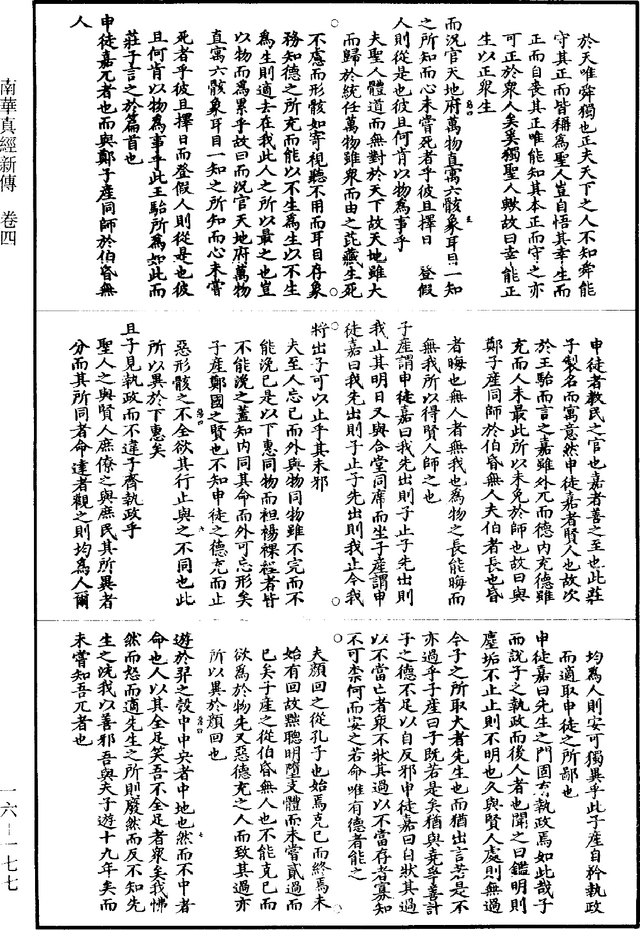 於天唯舜獨也正夫天下之人不知舜能
守其正而皆稱為聖人豈自悟其幸生而
正而自喪其正唯能知其本正而守之亦
可正於衆人矣奚獨聖人歟故曰幸能正
生以正衆生
而況官天地府萬物直寓六骸象耳目一知
之所知而心未嘗死者乎彼且擇日 登假
人則從是也彼且何肯以物為事乎
夫聖人體道而無對於天下故天地雖大
而歸於統任萬物雖衆而由之芘藏生死
不慮而形骸如寄視聽不用而耳目存象
務知德之所充而能以不生為生以不生
為生則適去在我此人之所以最之也豈
以物而為累乎故曰而況官天地府萬物
直寓六骸象耳目一知之所知而心未嘗
死者乎彼且擇日而登假人則從是也彼
且何肯以物為事乎此王駘所為如此而
莊子言之於篇首也
申徒嘉兀者也而與鄭子產同師於伯昏無
人
申徒者教民之官也嘉者善之至也此莊
子製名而寓意然申徒嘉者賢人也故次
於王駘而言之嘉雖外兀而德內充德雖
充而人未最此所以未免於師也故曰與
鄭子產同師於伯昏無人夫伯者長也昏
者晦也無人者無我也為物之長能晦而
無我所以得賢人師之也
子產謂申徒嘉曰我先出則子止子先出則
我止其明日又與合堂同席而坐子產謂申
徒嘉曰我先出則子止子先出則我止今我
將出子可以止乎其未邪
夫至人忘己而外與物同物雖不完而不
能浼己是以下惠同物而袒裼裸裎者皆
不能浼之蓋知內同其命而外可忘形矣
子產鄭國之賢也不知申徒之德充而止
惡形骸之不全欲其行止與之不同也此
所以異於下惠矣
且子見執政而不違子齊執政乎
聖人之與賢人庶僚之與庶民其所異者
分而其所同者命達者觀之則均為人爾
均為人則安可獨異乎此子產自矜執政
而適取申徒之所鄙也
申徒嘉曰先生之門固有執政焉如此哉子
而說子之執政而後人者也聞之曰鑑明則
塵垢不止止則不明也久與賢人處則無過
今子之所取大者先生也而猶出言若是不
亦過乎子產曰子既若是矣猶與堯爭善計
子之德不足以自反邪申徒嘉曰自狀其過
以不當亡者衆不狀其過以不當存者寡知
不可柰何而安之若命唯有德者能之
夫顏回之從孔子也始焉克己而終焉未
始有回故黜聰明墮支體而未嘗貳過而
已矣子產之從伯昏無人也不能克己而
欲為於物先又惡德充之人而致其過亦
所以異於顏回也
遊於羿之彀中中央者中地也然而不中者
命也人以其全足笑吾不全足者衆矣我怫
然而怒而適先生之所則廢然而反不知先
生之洗我以善邪吾與夫子遊十九年矣而
未嘗知吾兀者也
南華真經新傳 卷四
一六—一七七